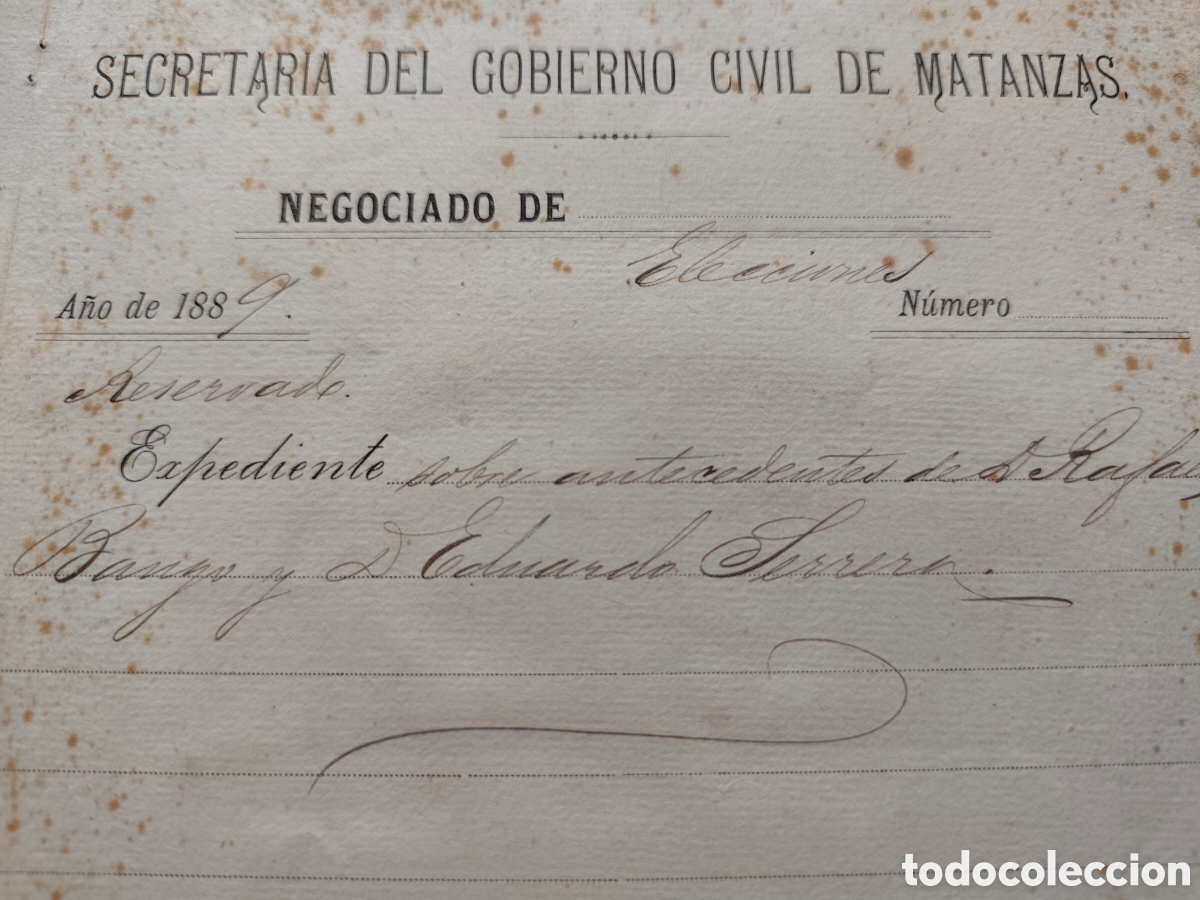 SECRETARIA DEL GOBIERNO CIVIL DE MATANZAS.
NEGOCIADO DE
Elecciones
Año de 1889. Número
Reservado.
Expediente sobre antecedentes de D Rafael
Bango y D Eduardo Serrera.
todocoleccion